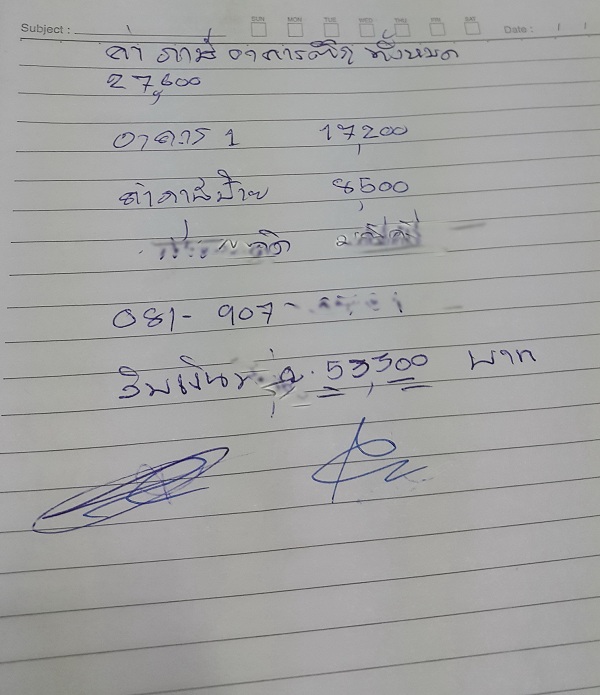 Subject : SUN MON TUE WED THU FRI SAT Date : / /
ค่า ภาษี อาคารตึก ทั้งหมด
27,600
อาคาร 1 17,200
ค่าภาษีป้าย 8,500
081-907-
รับเงิน 53,300 บาท